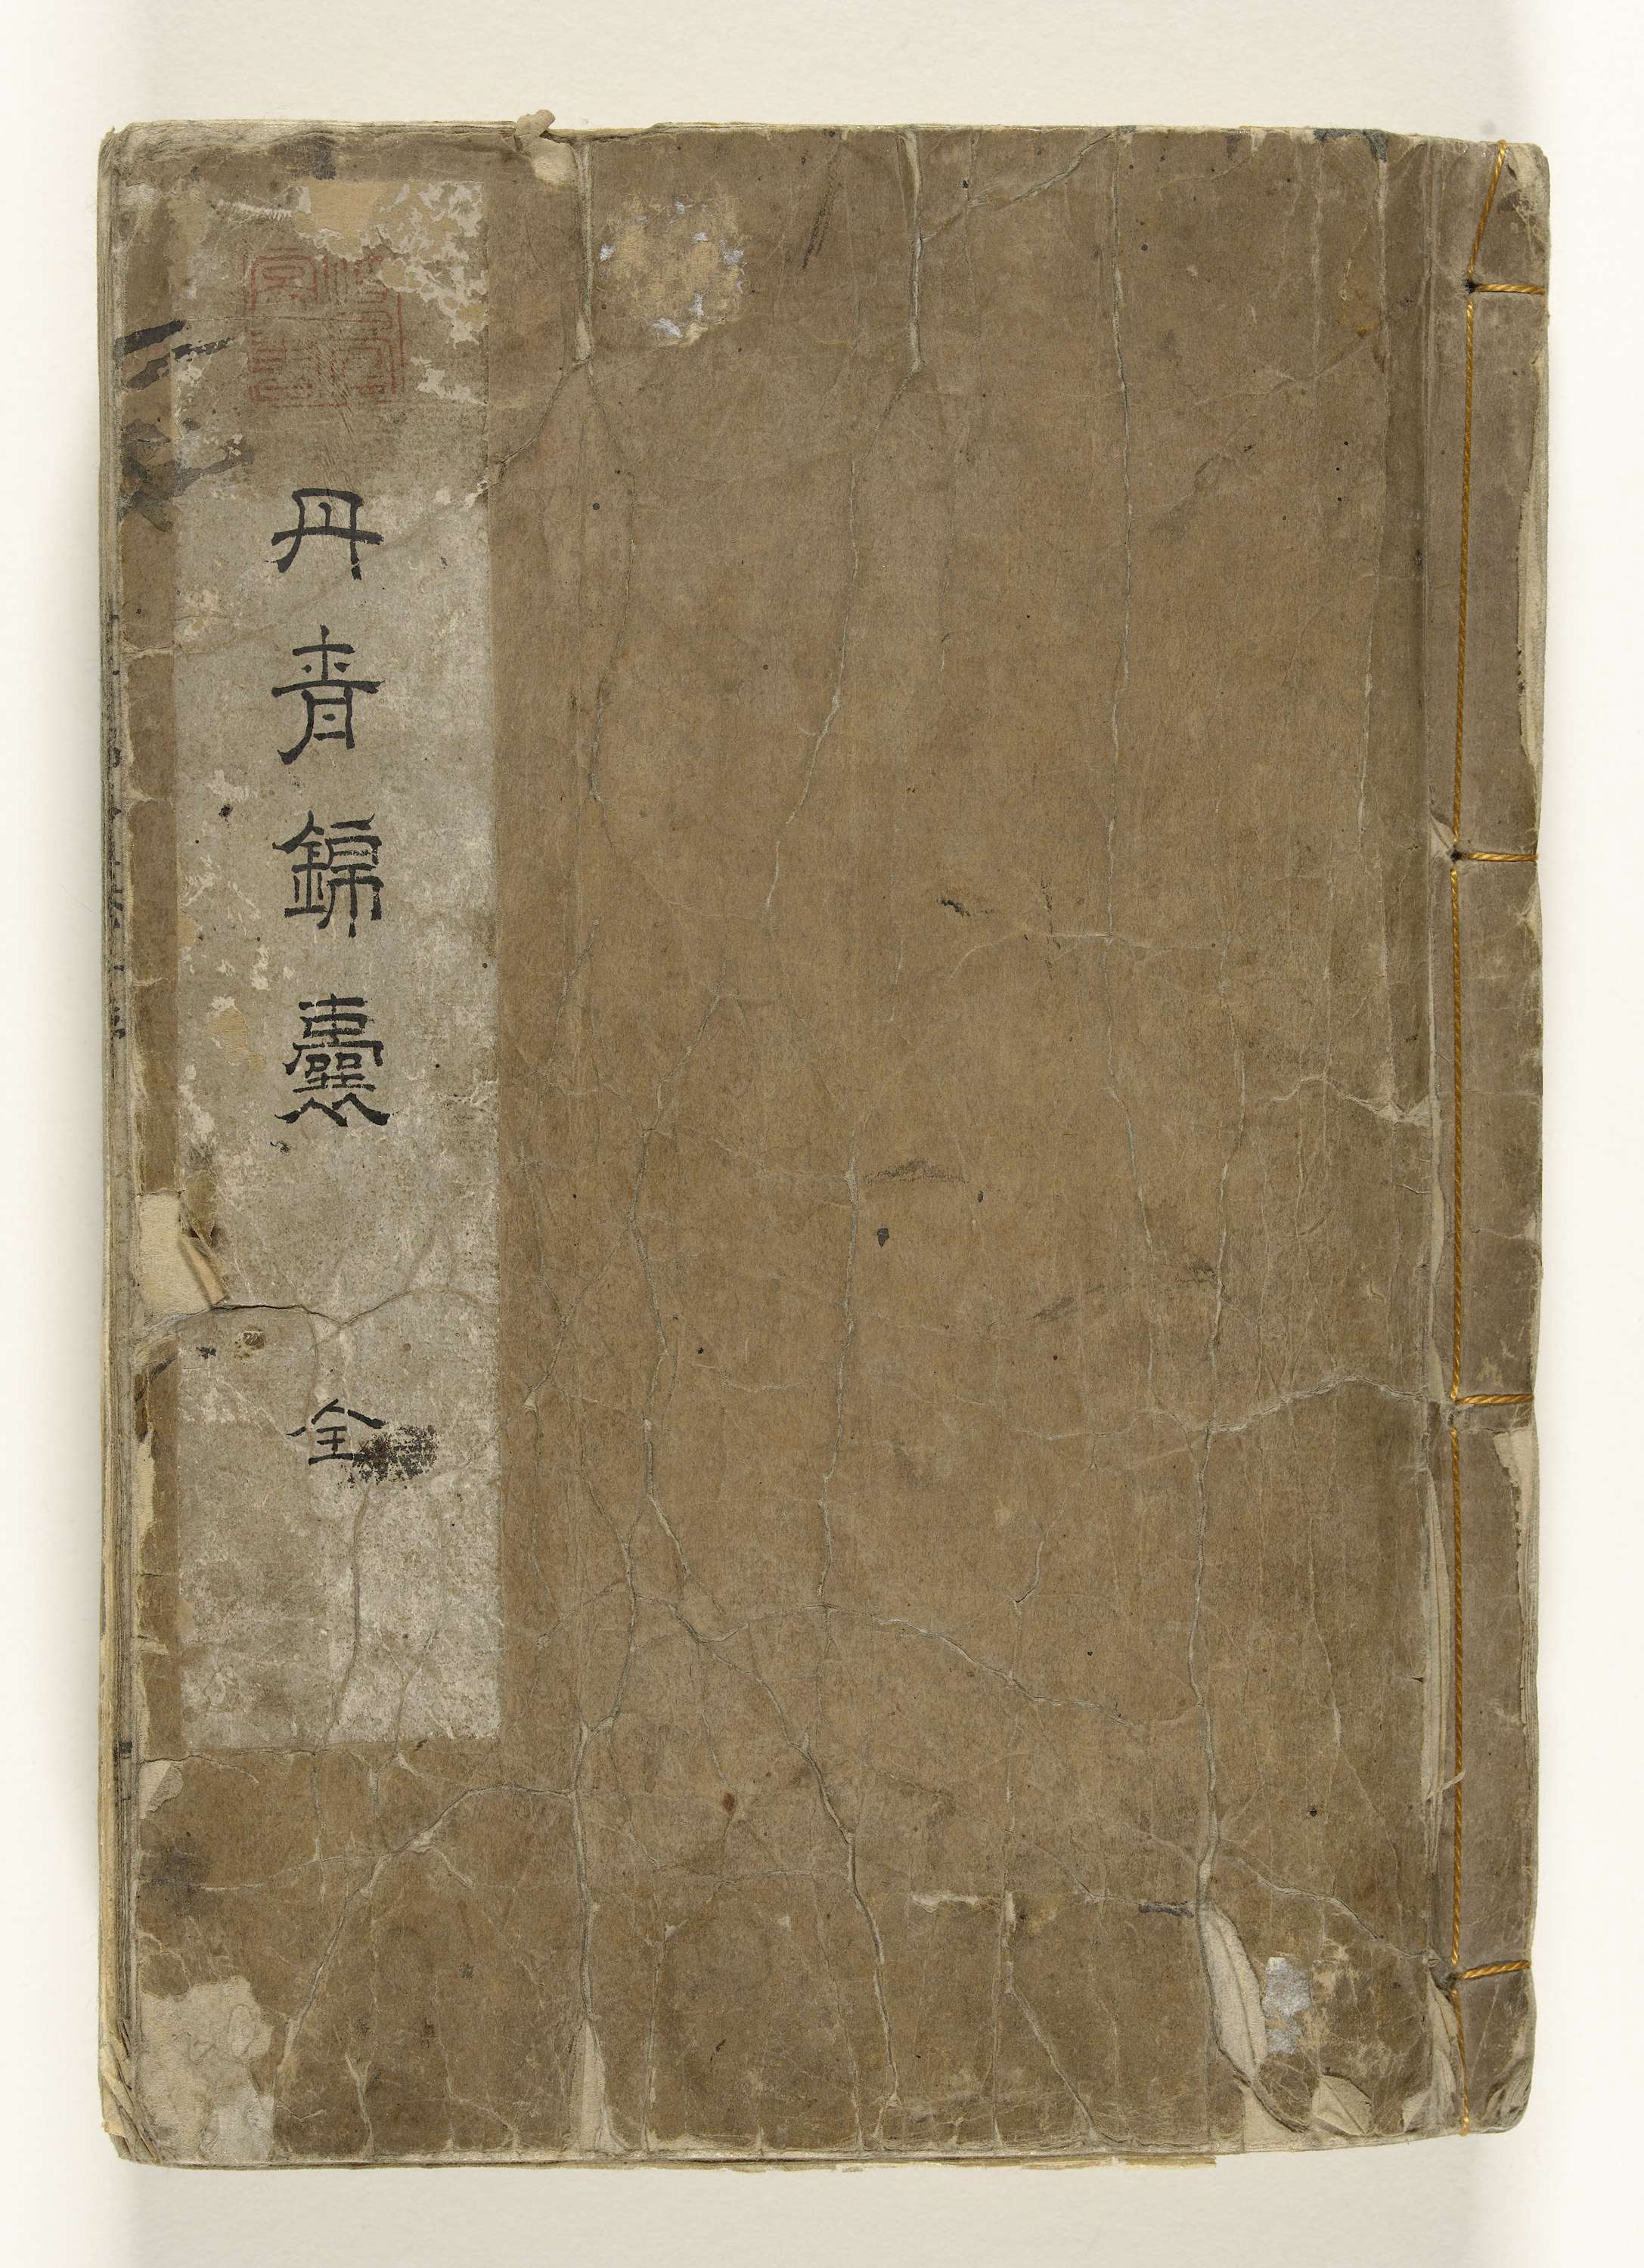 丹青錦嚢
全